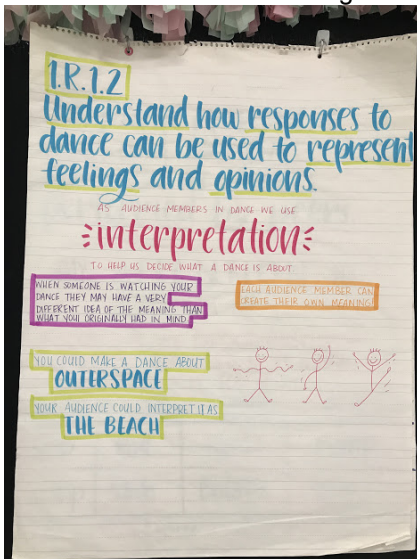 1.R.1.2
Understand how responses to
dance can be used to represent
feelings and opinions.
AS AUDIENCE MEMBERS IN DANCE WE USE
interpretation
TO HELP US DECIDE WHAT A DANCE IS ABOUT.
WHEN SOMEONE IS WATCHING YOUR
DANCE THEY MAY HAVE A VERY
DIFFERENT IDEA OF THE MEANING THAN
WHAT YOU ORIGINALLY HAD IN MIND.
EACH AUDIENCE MEMBER CAN
CREATE THEIR OWN MEANING!
YOU COULD MAKE A DANCE ABOUT
OUTERSPACE
YOUR AUDIENCE COULD INTERPRET IT AS
THE BEACH